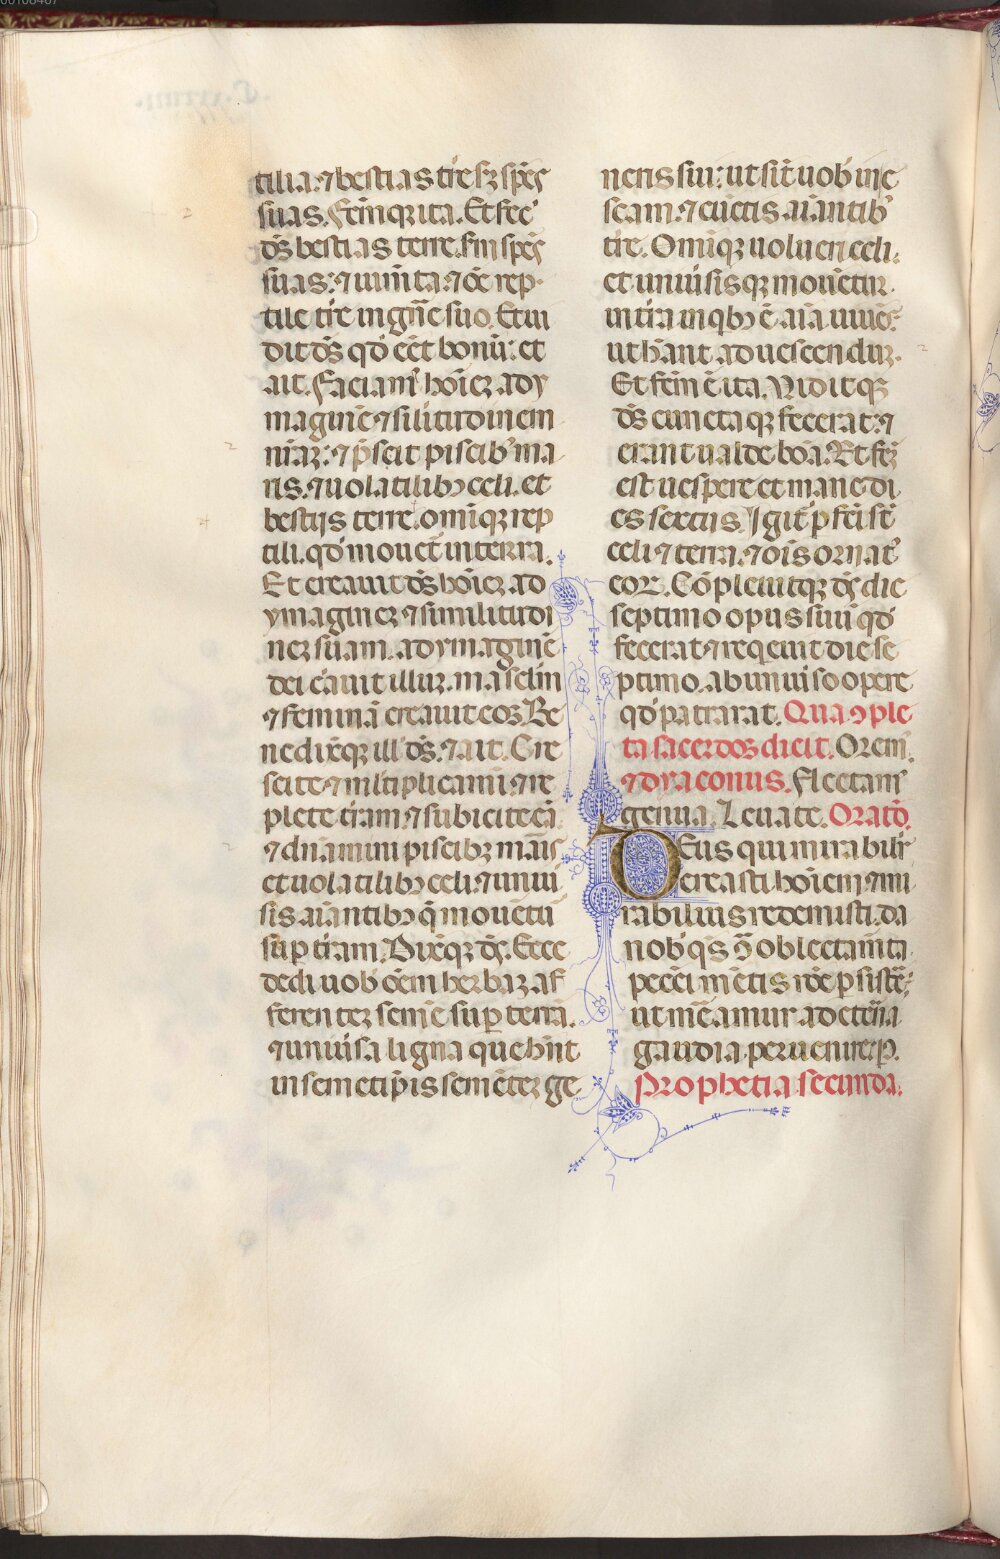 tilia: ⁊ bestias tr̄e sʒ spēs
suas. Fc̄mqʒ ita. Et fec̄
ds̄ bestias terre. sm̄ spēs
suas: ⁊ uiinīta: ⁊ oē rep-
tile tr̄e in gn̄e suo. Et ui
dit ds̄ qd̄ eēt bonū: et
ait. Faciam' hoīeʒ ad y
maginē ⁊ silitudinem
nr̄aʒ: ⁊ p̄scit piscib' ma
ris. ⁊ uolatilibʒ celi. et
bestijs terre. omīqʒ rep
tili. qd̄ mouet̄ in terra.
Et creauit ds̄ hoīeʒ ad
ymagineʒ ⁊ similitudi
neʒ suam. ad ymaginē
dei c̄auit illuʒ. masclin̄
⁊ feminā creauit eoʒ. Be
nedixqʒ ill' ds̄. ⁊ ait. Cre
scite ⁊ mltiplicamī ⁊ re
plete tr̄am: ⁊ subicite eā.
⁊ dn̄amini piscibʒ mar̄is
et uolatilibʒ celi. ⁊ uniu
sis aiantibʒ q̄ mouētū
sup tr̄am. Dixqʒ ds̄. Ecce
dedi uob' oēm herbaʒ af
ferenteʒ semē sup terrā.
⁊ uniusa ligna que hn̄t
in semetip̄is semēteʒ ge
neris sui: ut sit̄ uob' in e
scam. ⁊ cūctis aiantib'
tr̄e. Omīqʒ uolucri celi.
et uniusisqʒ mouētur.
in tr̄a in qbʒ ē aīa uiuēs:
ut hāant ad uescenduʒ.
Et fc̄m ē ita. Viditqʒ
ds̄ cuncta qʒ fecerat: ⁊
erant ualde bōa. Et fc̄ʒ
est uespere et mane di
es sextus. Igit̄ p̄fc̄i st̄
celi ⁊ terra. ⁊ oīs ornat'
eoꝝ. Cōpleuitqʒ ds̄ die
septimo opus suū qd̄
fecerat ⁊ reqeuit die se
ptimo. ab uniuso opere
qd̄ patrarat. Qua ↄple
ta sacerdos dicit. Orem'.
⁊ dyaconus. Flectam'
genua. Leuate. Oratō.
Deus qui mirabilit̄
creasti hoīem ⁊ mi
rabilius redemisti. da
nob' qs̄ ↄ̄ oblectamīta
pec̄ci mētis rōe p̄sistē;
ut mē amur ad etn̄a
gaudia peruenire. p.
Prophetia secunda.